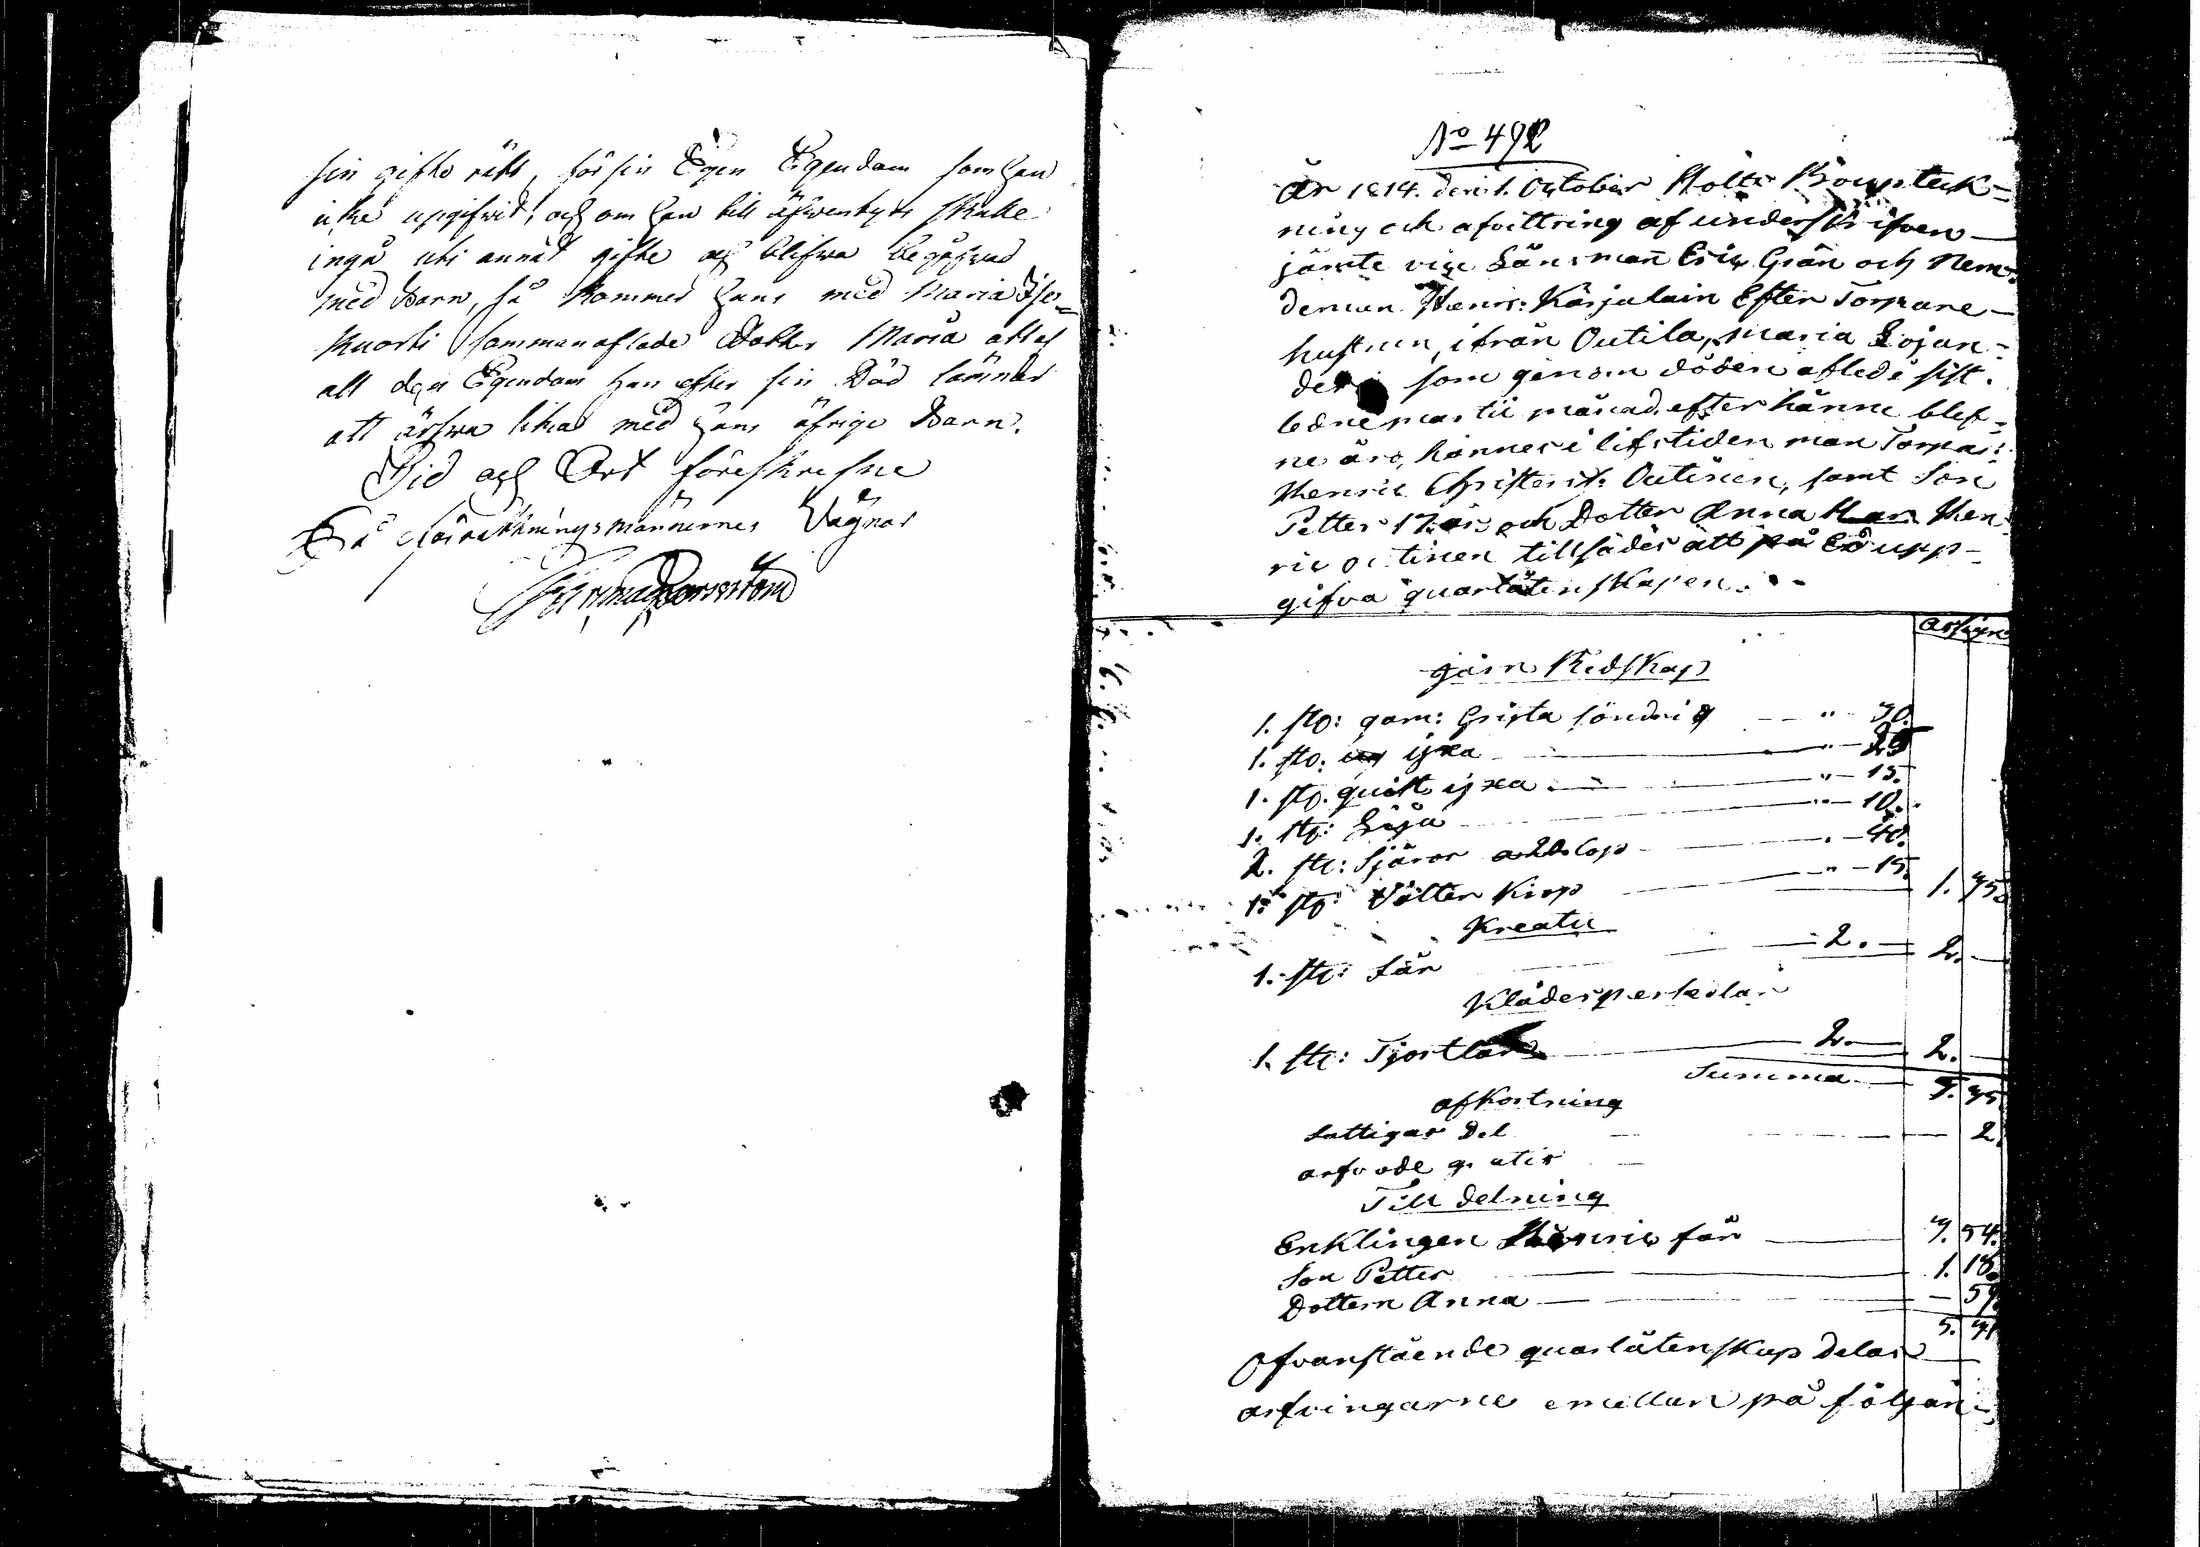 sin gifto rätt, för sin Egen Egendom som han
icke upgifwit, och om han till äfwentyrs skulle
ingå uti annat gifte och blifwa begåfwad
med Barn, så kommer hans med Maria
sammanaflade Dotter Maria
all den Egendom han efter sin Död lämnar
att ärfwa lika med hans öfrige Barn.
Tid och Ort föreskrefne
På Förrättningsmännernes Vägnar
No 492
År 1814. den 1. October Höltz Bouptek=
ning och afvittring af underskrifven
jämte vice Länsman Eric Grån och Nem=
deman Henr: Karjalain Efter Torpare
hustrun, ifrån Outila, Maria Lojan=
der som genom döden afled i sist.
ledne martii månad, efter hänne blef=
ne äro, hännes i lifstiden man Torpar:
Henric Christers: Outinen, samt Son
Petter 17. år och Dotter Anna Hen=
ric outinen tillsades att på Ed upp=
gifva quarlåtenskapen.
järn Redskap
1. st: gam: Grÿta söndrig — " — 70.
1. st: ÿxa — " — 25
1. st. quist ÿxa — " — 15.
1. st: Lija — " — 10.
2. st: — 40.
1. st: — " — 15. 1. 75.
Kreatu
1. st: får — 2. — 2. —
Klädespersedlar
1. st: Tjortlar — 2. — 2. —
Summa — 5. 75.
afkortning
fattigas Del — 2.
arfvode gratis —
Till delning
Enklingen Henric får — 54.
Son Petter — 1. 18.
Dottern Anna — 59.
5. 71
Ofvanstående quarlåtenskap delas
arfvingarne emellan på följan=